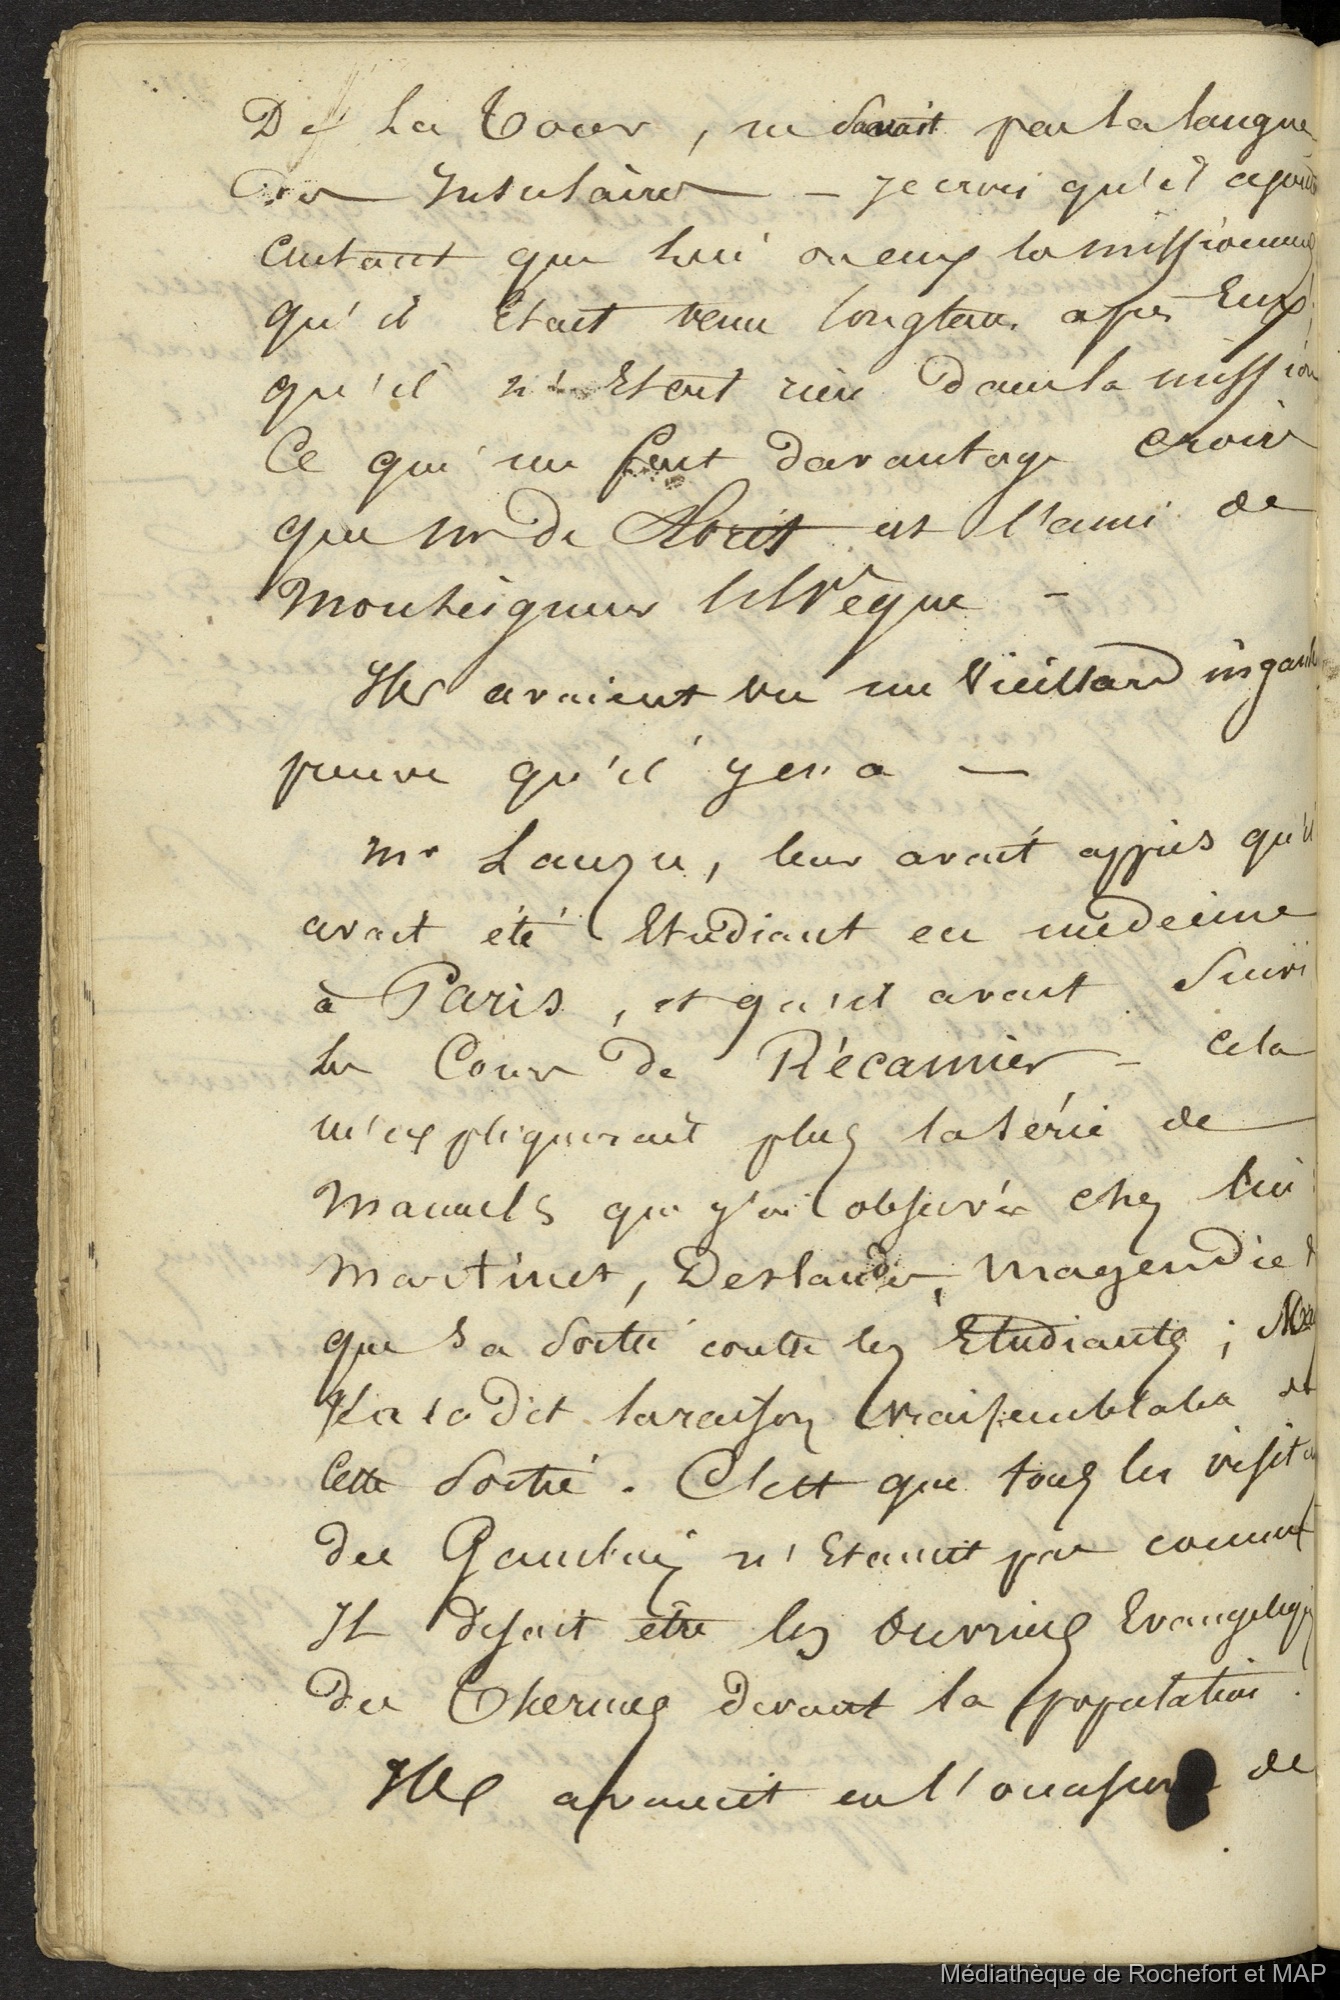 De La Tour, ne savait pas la langue
des Insulaires — je crois qu'il ajouta
autant que lui ou eux la missionnaires
qu'il était venu longtems après Eux,
qu'il n'Etait rien dans la mission
Ce qui me fait davantage croire
que mr de est l'ami de
Monseigneur l'Evêque —
Ils avaient vu un Vieillard
preuve qu'il y en a —
mr Lauzu, leur avait appris qu'il
avait été Etudiant en médecine
à Paris, et qu'il avait Suivi
les Cours de Récamier — Cela
m'expliquerait plus la série de
Manuels que j'ai observés chez lui
Martinet, Deslandes, Magendie &
que sa sortie contre les Etudiants ;
la raison vraisemblable de
Cette Sortie. C'est que tous les visit
des Gambier n'Etaient pas comme
Il disait être les ouvriers Evangeliq
des devant la population.
Ils avaient eu l'occasion de
Médiathèque de Rochefort et MAP